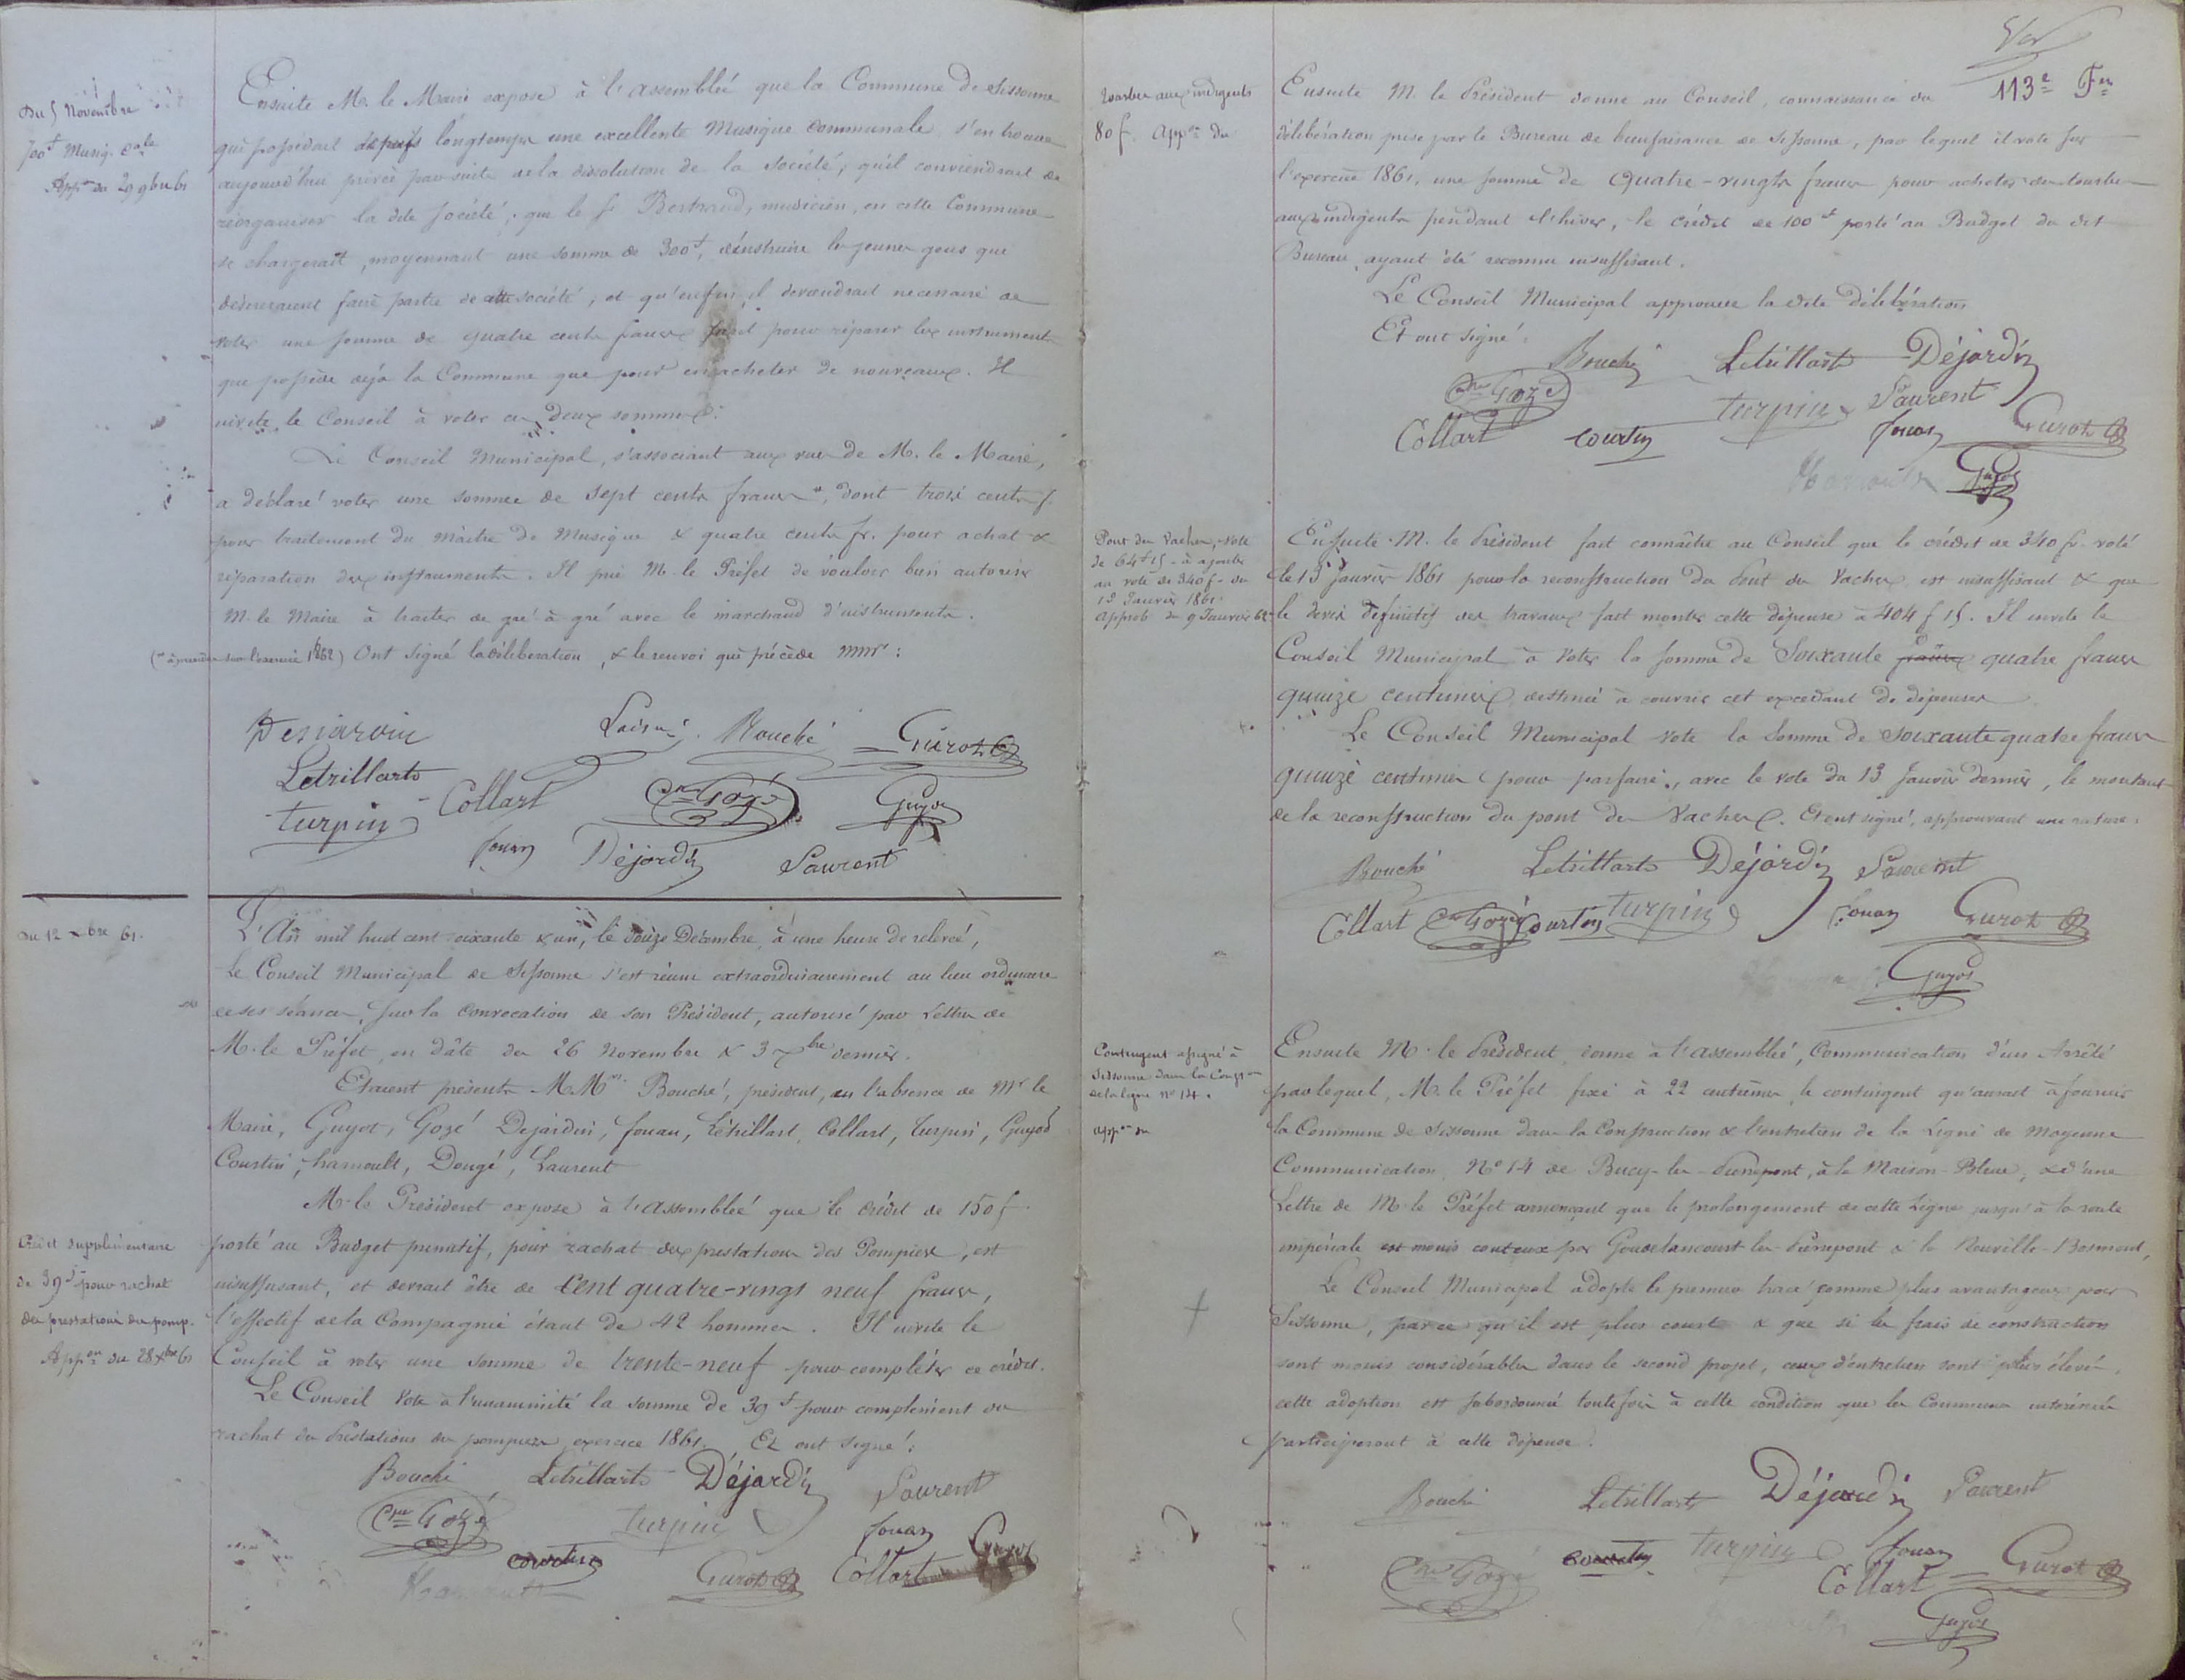 Du 5 Novembre
700f Musiq. Cale
Appon du 29 9bre 61
Ensuite M. le Maire expose à l'assemblée que la Commune de Sissonne
qui possédait depuis longtemps une excellente Musique Communale, s'en trouve
aujourd'hui privée par suite de la dissolution de la Société; qu'il conviendrait de
réorganiser la dite société; que le Sr Bertrand, musicien, en cette Commune
se chargerait, moyennant une somme de 300f, d'instruire les jeunes gens qui
désireraient faire partie de cette société; et qu'enfin il deviendrait nécessaire de
voter une somme de quatre cents francs soit pour réparer les instruments
que possède déjà la Commune que pour en acheter de nouveaux. Il
invite le Conseil à voter ces deux sommes.
Le Conseil Municipal, s'associant aux vues de M. le Maire,
a déclaré voter une somme de sept cents francs *, dont trois cents f.
pour traitement du Maître de Musique & quatre cents fr. pour achat &
réparation des instruments. Il prie M. le Préfet de vouloir bien autoriser
M. le Maire à traiter de gré à gré avec le marchand d'instruments.
(* à prendre sur l'exercice 1862) Ont signé la délibération, & le renvoi qui précède MMrs :
Desjardin Laisné Bouché Gurot
Letrillart Collart Cre Gozé Guyot
turpin Jouan Déjardin Laurent
Du 12 Xbre 61.
L'An mil huit cent soixante & un, le douze Décembre, à une heure de relevée,
Le Conseil Municipal de Sissonne s'est réuni extraordinairement au lieu ordinaire
de ses séances, sur la convocation de son Président, autorisé par Lettre de
M. le Préfet, en date du 26 Novembre & 3 Xbre dernier.
Etaient présents M.Mrs Bouché, président, en l'absence de Mr le
Maire, Guyot, Gozé Dejardin, Jouan, Létrillart, Collart, Turpin, Guyot
Courtin, hamoult, Dougé, Laurent
M. le Président expose à l'assemblée que le crédit de 150f.
Crédit supplémentaire
de 39f pour rachat
des prestations des pomp.
Appon du 28 Xbre 61
porté au Budget primitif, pour rachat des prestations des Pompiers, est
insuffisant, et devrait être de Cent quatre-vingt neuf francs,
l'effectif de la Compagnie étant de 42 hommes. Il invite le
Conseil à voter une somme de trente-neuf pour compléter ce crédit.
Le Conseil Vote à l'unanimité la somme de 39f pour complément du
rachat des Prestations des pompiers, exercice 1861. Et ont signé :
Bouché Letrillart Déjardin Laurent
Cre Gozé turpin Jouan
courtin Gurot Collart Guyot
113e Fet
Tourbes aux indigents
80f. Appon du
Ensuite M. le Président donne au Conseil, connaissance du
délibération prise par le Bureau de bienfaisance de Sissonne, par lequel il vote sur
l'exercice 1861, une somme de Quatre-vingts francs pour acheter des tourbes
aux indigents pendant l'hiver, le crédit de 100f porté au Budget du dit
Bureau, ayant été reconnu insuffisant.
Le Conseil Municipal approuve la dite délibération
Et ont signé :
Bouché Letrillart Déjardin
Cre Gozé turpin Laurent
Collart courtin Jouan Gurot
Hamoult Guyot
Pont des Vaches, Vote
de 64f15 - à ajouter
au vote de 340f - du
13 Janvier 1861.
Approb du 9 Janvier 62
Ensuite M. le Président fait connaître au Conseil que le crédit de 340 fr. voté
le 13 Janvier 1861 pour la reconstruction du Pont des Vaches, est insuffisant & que
le devis définitif des travaux fait monter cette dépense à 404 f 15. Il invite le
Conseil Municipal à Voter la somme de Soixante francs quatre francs
quinze centimes, destinée à couvrir cet excédant de dépenses
Le Conseil Municipal vote la somme de soixante quatre francs
quinze centimes pour parfaire, avec le vote du 13 Janvier dernier, le montant
de la reconstruction du pont des Vaches. Et ont signé, approuvant une rature :
Bouché Letrillart Déjardin Laurent
Collart Cre Gozé Courtin turpin Jouan Gurot
Guyot
Contingent assigné à
Sissonne dans la Const on
de la ligne No 14.
Appon du
Ensuite M. le Président, donne à l'assemblée, Communication d'un Arrêté
par lequel, M. le Préfet fixe à 22 centièmes, le contingent qu'aurait à fournir
la Commune de Sissonne dans la Construction & l'entretien de la Ligne de Moyenne
Communication No 14 de Bucy-les-Pierrepont, à la Maison-Bleue, & d'une
Lettre de M. le Préfet annonçant que le prolongement de cette Ligne jusqu'à la route
impériale est moins couteux par Goudelancourt-les-Pierrepont & la Neuville-Bosmont,
Le Conseil Municipal adopte le premier tracé comme plus avantageux pour
Sissonne, parce qu'il est plus court & que si les frais de construction
sont moins considérables dans le second projet, ceux d'entretien sont plus élevés.
cette adoption est subordonnée toutefois à cette condition que les Communes intéressées
participeront à cette dépense.
Bouché Letrillart Déjardin Laurent
Cre Gozé courtin turpin Jouan Gurot
Collart
Guyot